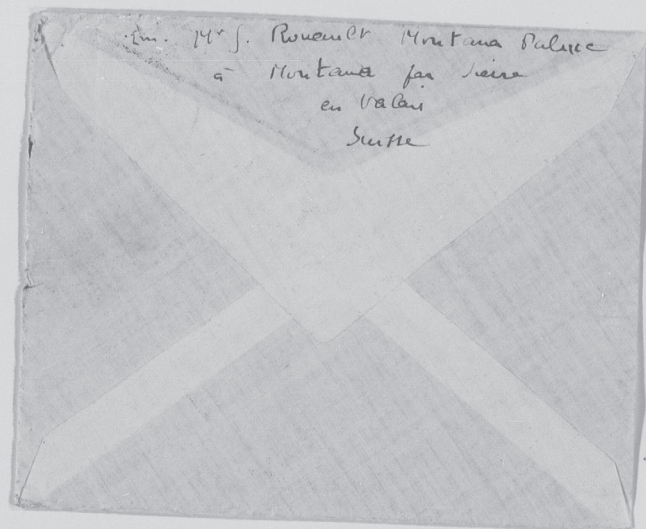 Em. Mr G. Rouault Montana Palace
à Montana par Sierre
en Valais
Suisse